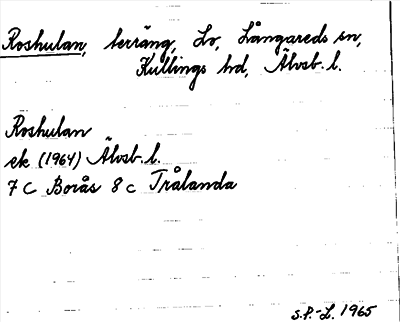 Roshulan, terräng, Lo, Långareds sn,
Kullings hd, Älvsb. l.
Roshulan
ek (1964) Älvsb. l.
7 C Borås 8 c Trålanda
S.P.-L. 1965